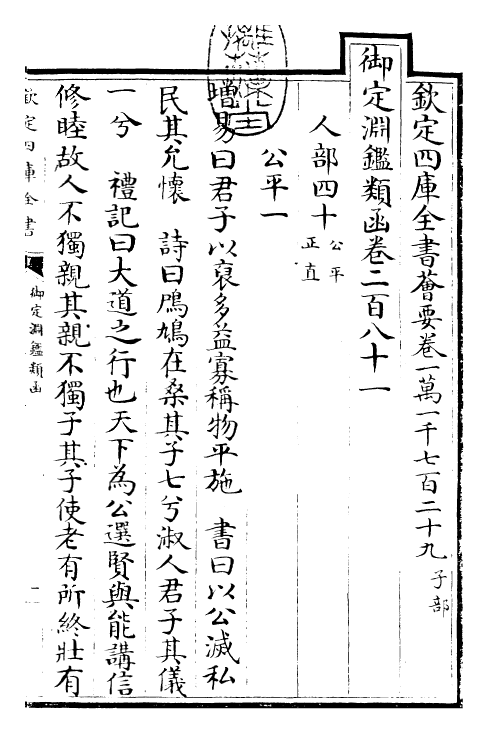 欽定四庫全書薈要卷一萬一千七百二十九 子部
御定淵鑑類函卷二百八十一
人部四十 公平 正直
公平一
增易曰君子以裒多益寡稱物平施 書曰以公滅私
民其允懷 詩曰鳲鳩在桑其子七兮淑人君子其儀
一兮 禮記曰大道之行也天下為公選賢與能講信
修睦故人不獨親其親不獨子其子使老有所終壯有
欽定四庫全書
御定淵鑑類函
一